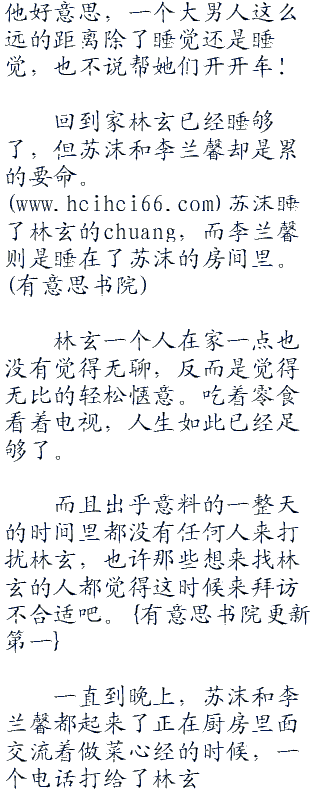 他好意思，一个大男人这么
远的距离除了睡觉还是睡
觉，也不说帮她们开开车！
回到家林玄已经睡够
了，但苏沫和李兰馨却是累
的要命。
(www.hcihci66.com)苏沫睡
了林玄的chuang，而李兰馨
则是睡在了苏沫的房间里。
(有意思书院)
林玄一个人在家一点也
没有觉得无聊，反而是觉得
无比的轻松惬意。吃着零食
看着电视，人生如此已经足
够了。
而且出乎意料的一整天
的时间里都没有任何人来打
扰林玄，也许那些想来找林
玄的人都觉得这时候来拜访
不合适吧。{有意思书院更新
第一}
一直到晚上，苏沫和李
兰馨都起来了正在厨房里面
交流着做菜心经的时候，一
个电话打给了林玄